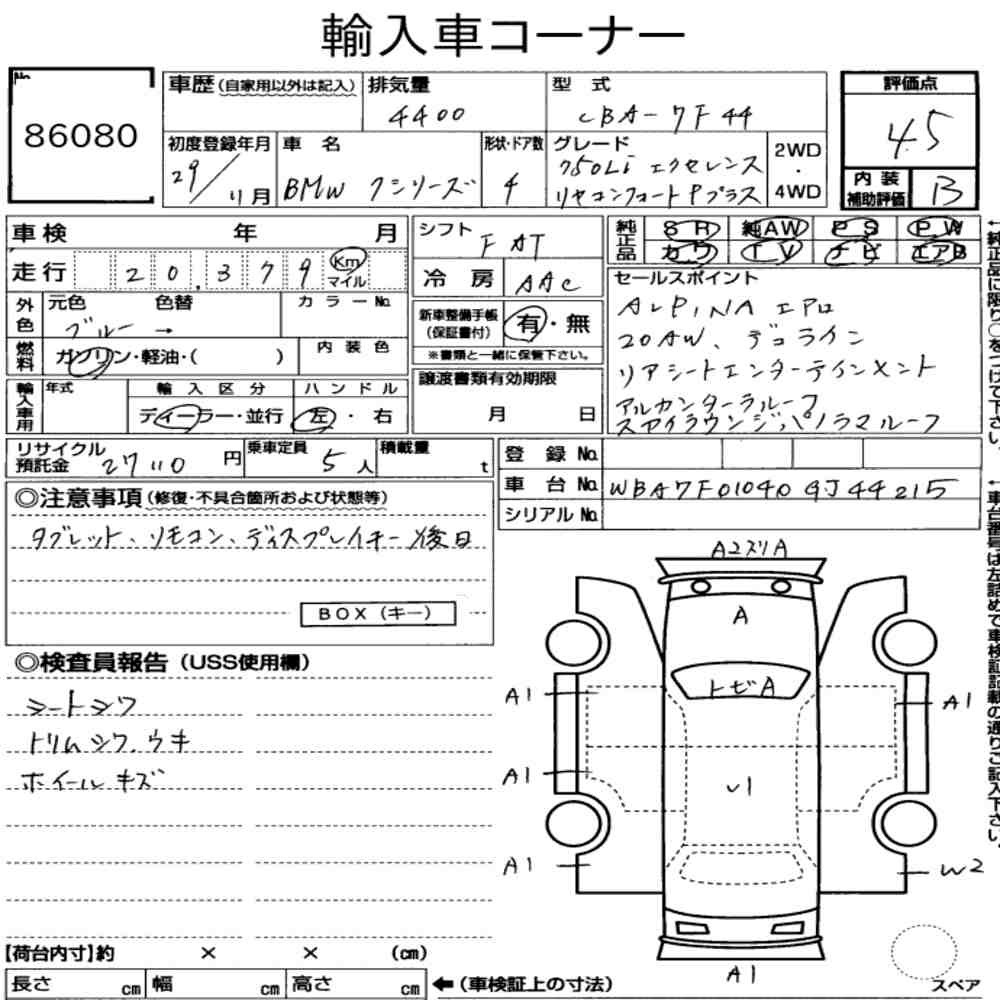 輸入車コーナー
No.
86080
車歴(自家用以外は記入)
排気量
4400
型式
CBA-7F44
評価点
4.5
初度登録年月
29/11月
車名
BMW 7シリーズ
形状・ドア数
4
グレード
750Li エクセレンス
リヤコンフォートPプラス
2WD
・
4WD
内装補助評価
B
車検 年 月
走行 20.379 Km マイル
シフト
FAT
冷房
AAC
純正品
SR 純AW PS PW
カワ TV ナビ エアB
外色
元色 色替 カラーNo.
ブルー →
燃料
ガソリン・軽油・( )
内装色
新車整備手帳
(保証書付)
有・無
※書類と一緒に保管下さい。
輸入車用
年式
輸入区分
ディーラー・並行
ハンドル
左・右
譲渡書類有効期限
月 日
セールスポイント
ALPINA エアロ
20AW、デコライン
リアシートエンターテインメント
アルカンターラルーフ
スカイラウンジ,パノラマルーフ
←純正品に限り○をつけて下さい。
リサイクル預託金
27110円
乗車定員
5人
積載量
t
登録No.
車台No. WBA7F01040GJ44215
シリアルNo.
◎注意事項(修復・不具合箇所および状態等)
タブレット、リモコン、ディスプレイキー後日
BOX(キー)
←車台番号は左詰めで車検証記載の通りご記入下さい。
◎検査員報告(USS使用欄)
シートシワ
トリムシワ、ウキ
ホイールキズ
A2スリA
A
トビA
A1
A1
A1
U1
A1
W2
A1
スペア
【荷台内寸】約 × × (cm)
長さ cm 幅 cm 高さ cm
←(車検証上の寸法)